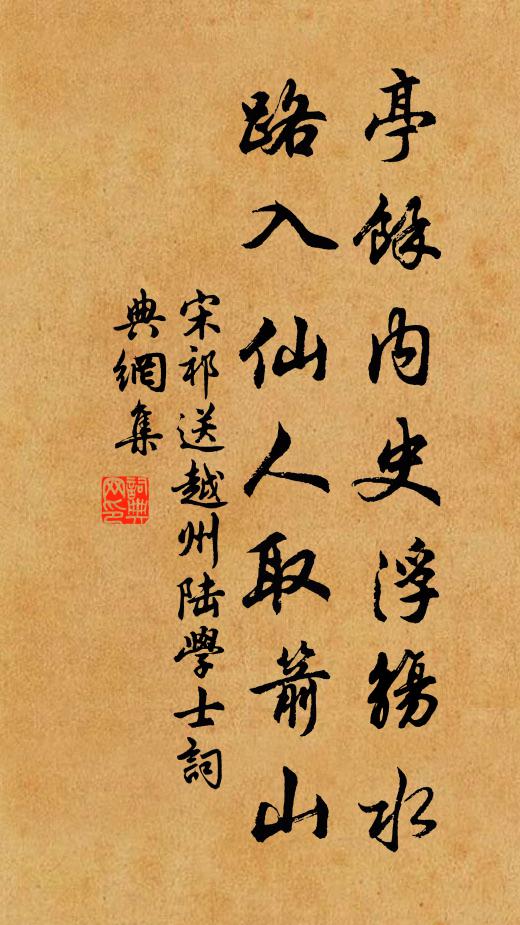 亭餘内史浮觴水
路入仙人取箭山
宋祁送越州陆學士詞
典網集
詞典
网印